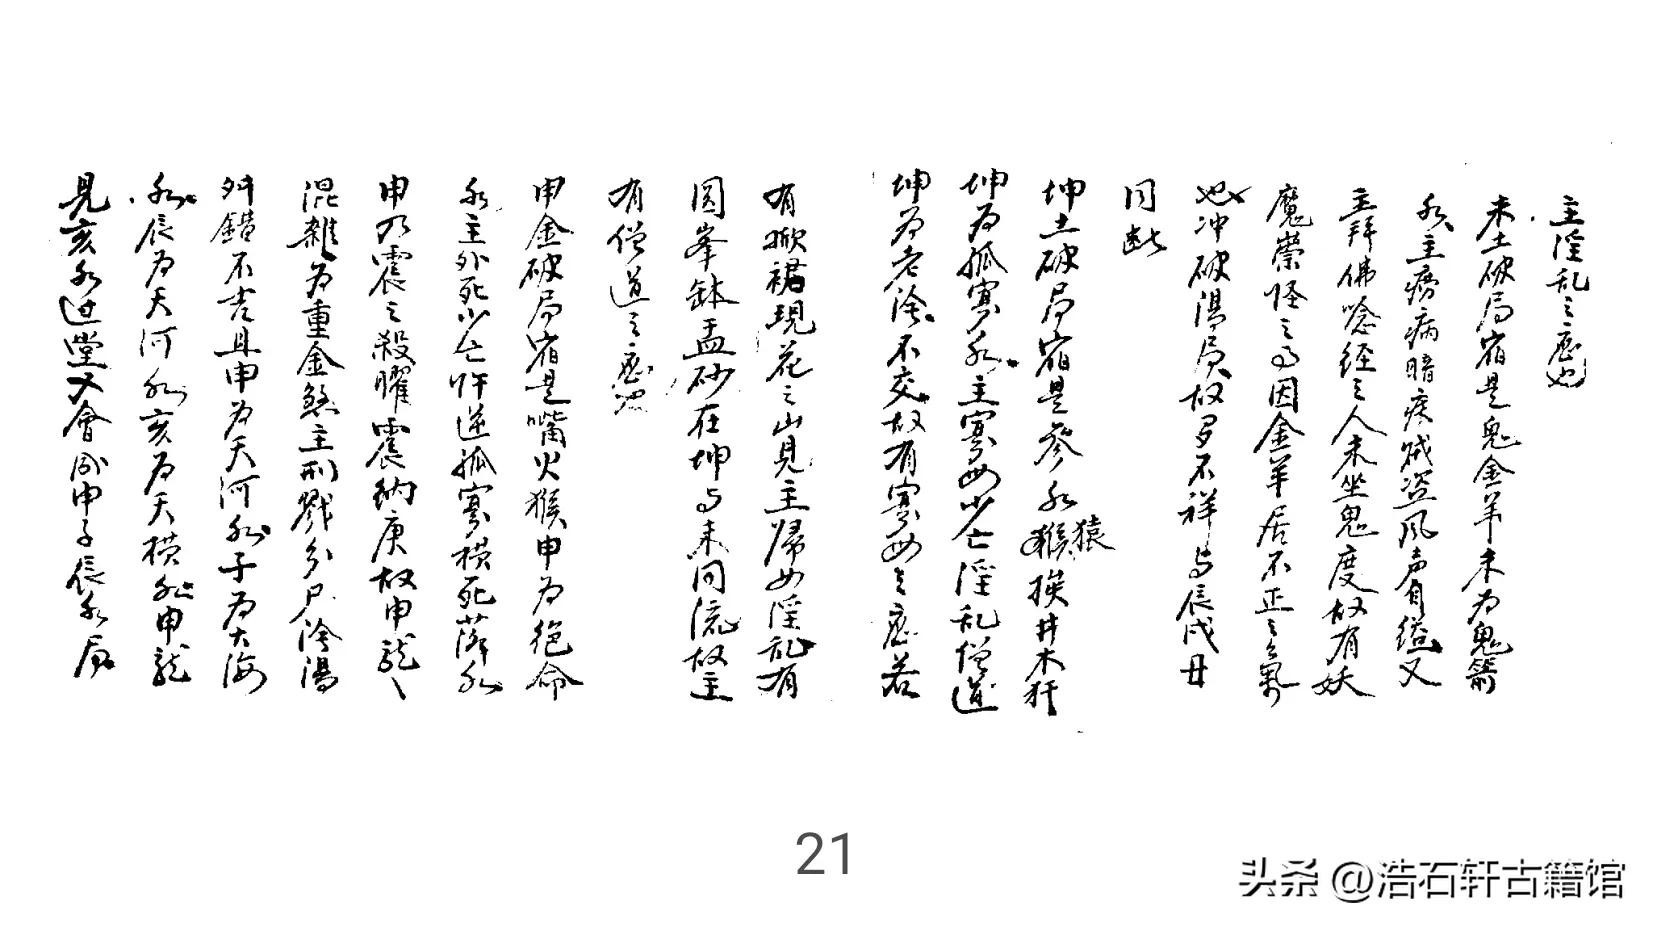 主淫乱之应也
未土破局宿是鬼金羊未为鬼箭
水主痨病暗疾贼盗风声自缢又
主拜佛唸经之人未坐鬼度故有妖
魔祟怪之事因金羊居不正之氣
也冲破阳局故多不祥与辰戌丑
同断
坤土破局宿是參水猿猴挨井木犴
坤为孤寡水主寡母少亡淫乱僧道
坤为老阴不交故有寡母之应若
有掀裙現花之山見主婦女淫乱有
圆峯鉢盂砂在坤与未同流故主
有僧道之应也
申金破局宿是嘴火猴申为绝命
水主外死少亡忤逆孤寡横死落水
申乃震之殺曜震納庚故申龍
混雜为重金煞主刑戮分尸阴陽
舛錯不吉且申为天河水子为大海
水辰为天河水亥为天横水申龍
見亥水过堂又會成申子辰水局
21
头条 @浩石轩古籍馆